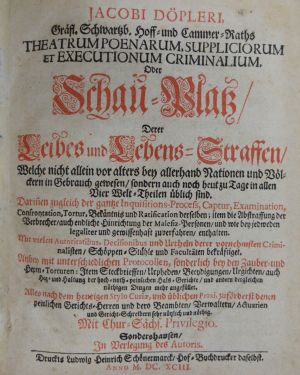 JACOBI DÖPLERI,
Gräfl. Schwartzb. Hoff- und Cammer-Raths
THEATRUM POENARUM, SUPPLICIORUM
ET EXECUTIONUM CRIMINALIUM,
Oder
Schau-Platz/
Derer
Leibes und Lebens-Straffen/
Welche nicht allein vor alters bey allerhand Nationen und Völ-
ckern in Gebrauch gewesen/ sondern auch noch heut zu Tage in allen
Vier Welt-Theilen üblich sind.
Darinnen zugleich der gantze Inquisitions-Process, Captur, Examination,
Confrontation, Tortur, Bekäntnis und Ratification derselben; item die Abstraffung der
Verbrecher/ auch endliche Hinrichtung der Malefitz-Personen/ und wie bey jedweden
legaliter und gewissenhafft zuverfahren/ enthalten.
Mit vielen Autoritatibus Decisionibus und Urtheln derer vornehmsten Crimi-
nalisten/ Schöppen-Stühle und Facultäten bekräfftiget.
Nebst mit unterschiedlichen Protocollen, sonderlich bey den Zauber- und
Hexen-Torturen; Item Steckbrieffen/ Urpheden/ Beeydigungen/ Urgichten/ auch
Heg- und Haltung der hoch-noth-peinlichen Hals-Gerichte/ und andern dergleichen
nöthigen Dingen mehr angefüllet.
Alles nach dem heutigen Stylo Curiæ, und üblichen Praxi zuförderst denen
peinlichen Gerichts-Herren und dero Beamten/ Verwaltern/ Actuarien
und Gericht-Schreibern sehr nützlich und nöthig.
Mit Chur-Sächs. Privilegio.
Sondershausen/
In Verlegung des Autoris.
Druckts Ludwig Heinrich Schönermarck/ Hof-Buchdrucker daselbst.
ANNO M DC. XCIII.